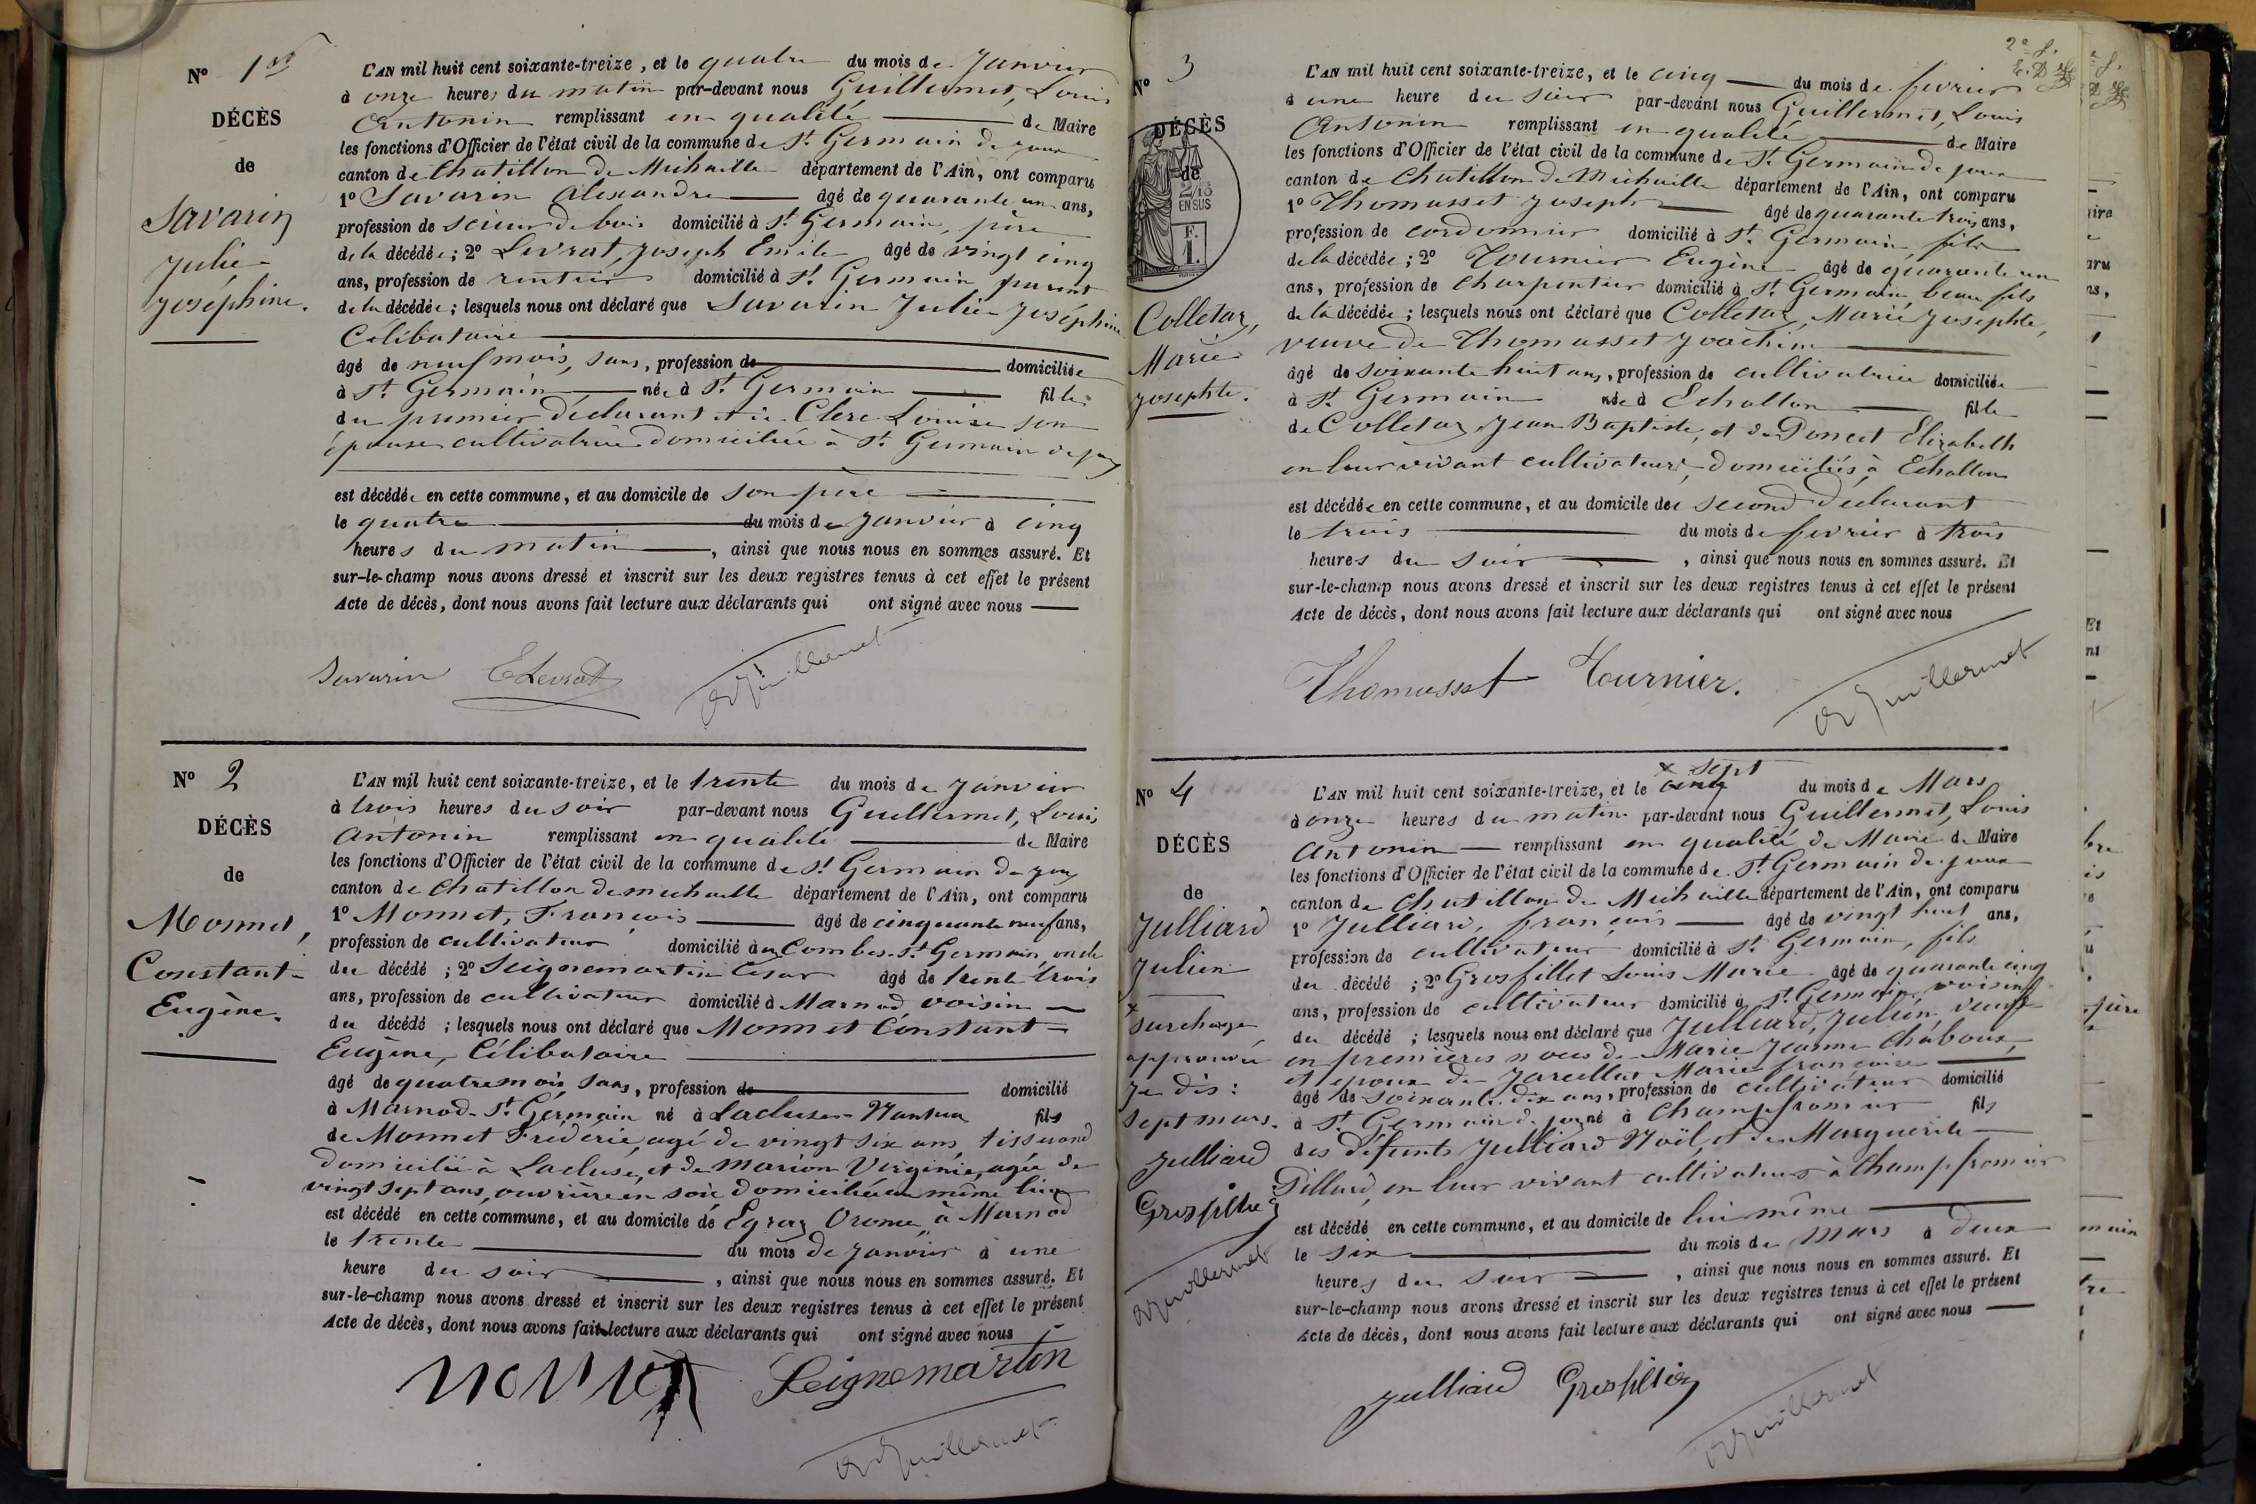 N° 1er
DÉCÈS
de
Savarin
Julie
Joséphine.
L'AN mil huit cent soixante-treize, et le quatre du mois de Janvier
à onze heures du matin par-devant nous Guillermet, Louis
Antonin remplissant en qualité de Maire
les fonctions d'Officier de l'état civil de la commune de St Germain de joux
canton de Chatillon de Michaille département de l'Ain, ont comparu
1° Savarin Alexandre âgé de quarante un ans,
profession de scieur de bois domicilié à St Germain, père
de la décédée; 2° Levrat, Joseph Emile âgé de vingt cinq
ans, profession de rentier domicilié à St Germain parent
de la décédée; lesquels nous ont déclaré que Savarin Julie Joséphine
Célibataire
âgé de neuf mois, sans, profession de domiciliée
à St Germain née à St Germain fille
du premier déclarant et de Clerc Louise son
épouse cultivatrice domiciliée à St Germain de joux
est décédée en cette commune, et au domicile de son père
le quatre du mois de Janvier à cinq
heures du matin, ainsi que nous nous en sommes assuré. Et
sur-le-champ nous avons dressé et inscrit sur les deux registres tenus à cet effet le présent
Acte de décès, dont nous avons fait lecture aux déclarants qui ont signé avec nous
Savarin ELevrat Guillermet
N° 2
DÉCÈS
de
Monnet,
Constant
Eugène.
L'AN mil huit cent soixante-treize, et le trente du mois de Janvier
à trois heures du soir par-devant nous Guillermet, Louis
Antonin remplissant en qualité de Maire
les fonctions d'Officier de l'état civil de la commune de St Germain de joux
canton de Chatillon de michaille département de l'Ain, ont comparu
1° Monnet, François âgé de cinquante neuf ans,
profession de cultivateur domicilié à Combes-St Germain, oncle
du décédé; 2° Seignemartin César âgé de trente trois
ans, profession de cultivateur domicilié à Marnod voisin
du décédé; lesquels nous ont déclaré que Monnet Constant
Eugène, Célibataire
âgé de quatre mois, sans, profession de domicilié
à Marnod-St Germain né à Lacluse-Nantua fils
de Monnet Fréderic, agé de vingt six ans, tisserand
domicilié à Lacluse, et de Marion Virginie, agée de
vingt sept ans, ouvrière en soie domiciliée au même lieu
est décédé en cette commune, et au domicile de Egraz Orome à Marnod
le trente du mois de Janvier à une
heure du soir, ainsi que nous nous en sommes assuré. Et
sur-le-champ nous avons dressé et inscrit sur les deux registres tenus à cet effet le présent
Acte de décès, dont nous avons fait lecture aux déclarants qui ont signé avec nous
monnet Seignemartin
Guillermet
2e f.
N° 3
DÉCÈS
de
2/10
EN SUS
F.
1.
Colletaz,
Marie
Josephte.
L'AN mil huit cent soixante-treize, et le cinq du mois de fevrier
à une heure du soir par-devant nous Guillermet, Louis
Antonin remplissant en qualité de Maire
les fonctions d'Officier de l'état civil de la commune de St Germain de joux
canton de Chatillon de Michaille département de l'Ain, ont comparu
1° Thomasset Joseph âgé de quarante trois ans,
profession de cordonnier domicilié à St Germain, fils
de la décédée; 2° Tournier Eugène âgé de quarante un
ans, profession de charpentier domicilié à St Germain, beau fils
de la décédée; lesquels nous ont déclaré que Colletaz, Marie Josephte,
veuve de Thomasset Joachim
âgé de soixante huit ans, profession de cultivatrice domiciliée
à St Germain née à Echallon fille
de Colletaz, Jean Baptiste, et de Poncet Elizabeth
en leur vivant cultivateurs, domiciliés à Echallon
est décédée en cette commune, et au domicile de second déclarant
le trois du mois de fevrier à trois
heures du soir, ainsi que nous nous en sommes assuré. Et
sur-le-champ nous avons dressé et inscrit sur les deux registres tenus à cet effet le présent
Acte de décès, dont nous avons fait lecture aux déclarants qui ont signé avec nous
Thomasset Tournier.
Guillermet
N° 4
DÉCÈS
de
Julliard
Julien
x surcharge
approuvée
Je dis:
sept mars.
Julliard
Grosfillex
Guillermet
x sept
L'AN mil huit cent soixante-treize, et le cinq du mois de Mars
à onze heures du matin par-devant nous Guillermet, Louis
Antonin remplissant en qualité de Maire de Maire
les fonctions d'Officier de l'état civil de la commune de St Germain de joux
canton de Chatillon de Michaille département de l'Ain, ont comparu
1° Julliard, françois âgé de vingt huit ans,
profession de cultivateur domicilié à St Germain, fils
du décédé; 2° Grosfillet Louis Marie âgé de quarante cinq
ans, profession de cultivateur domicilié à St Germain voisin
du décédé; lesquels nous ont déclaré que Julliard, Julien, veuf
en premières noces de Marie Jeanne Chaboux,
et epoux de Marie françoise
âgé de soixante dix ans, profession de cultivateur domicilié
à St Germain de joux né à Champfromier fils
des défunts Julliard Noël, et de Marguerite
en leur vivant cultivateurs à Champfromier
est décédé en cette commune, et au domicile de lui même
le six du mois de Mars à deux
heures du soir, ainsi que nous nous en sommes assuré. Et
sur-le-champ nous avons dressé et inscrit sur les deux registres tenus à cet effet le présent
Acte de décès, dont nous avons fait lecture aux déclarants qui ont signé avec nous
Julliard Grosfillex
Guillermet